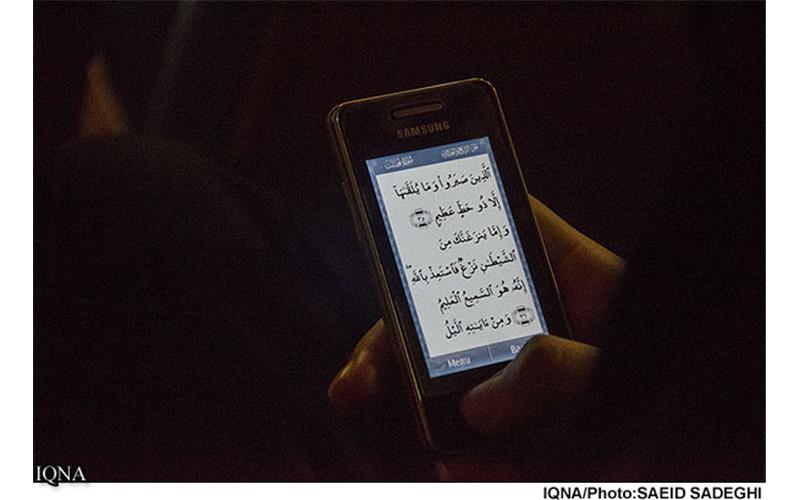 SAMSUNG
ٱلَّذِينَ صَبَرُوا۟ وَمَا يُلَقَّىٰهَآ
إِلَّا ذُو حَظٍّ عَظِيمٍ ٣٥
وَإِمَّا يَنزَغَنَّكَ مِنَ
ٱلشَّيْطَـٰنِ نَزْغٌ فَٱسْتَعِذْ بِٱللَّهِ ۖ
إِنَّهُۥ هُوَ ٱلسَّمِيعُ ٱلْعَلِيمُ
٣٦ وَمِنْ ءَايَـٰتِهِ ٱلَّيْلُ
Menu
IQNA
IQNA/Photo:SAEID SADEGHI